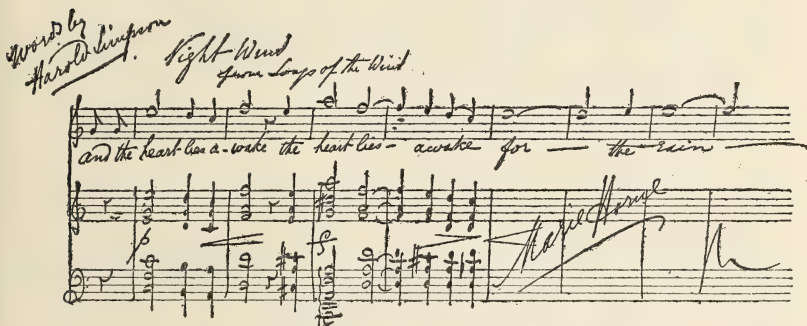 Words by
Harold Simpson
Night Wind
from Songs of the Wind
and the heart lies a-wake the heart lies - awake for — the rain —
p
Marie Horne